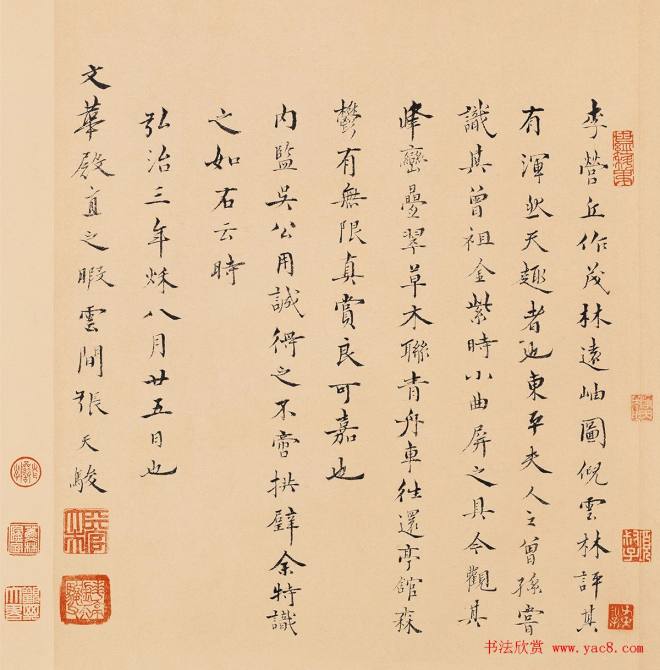 李營丘作茂林遠岫圖倪雲林評其
有渾然天趣者也東平夫人之曾孫嘗
識其曾祖金紫時小曲屏之具今觀其
峰巒疊翠草木聯青舟車往還亭館森
欝有無限真賞良可嘉也
内監吳公用誠得之不啻拱璧余特識
之如右云時
弘治三年烌八月廿五日也
文華殿直之暇雲間張天駿
书法欣赏
www.yac8.com